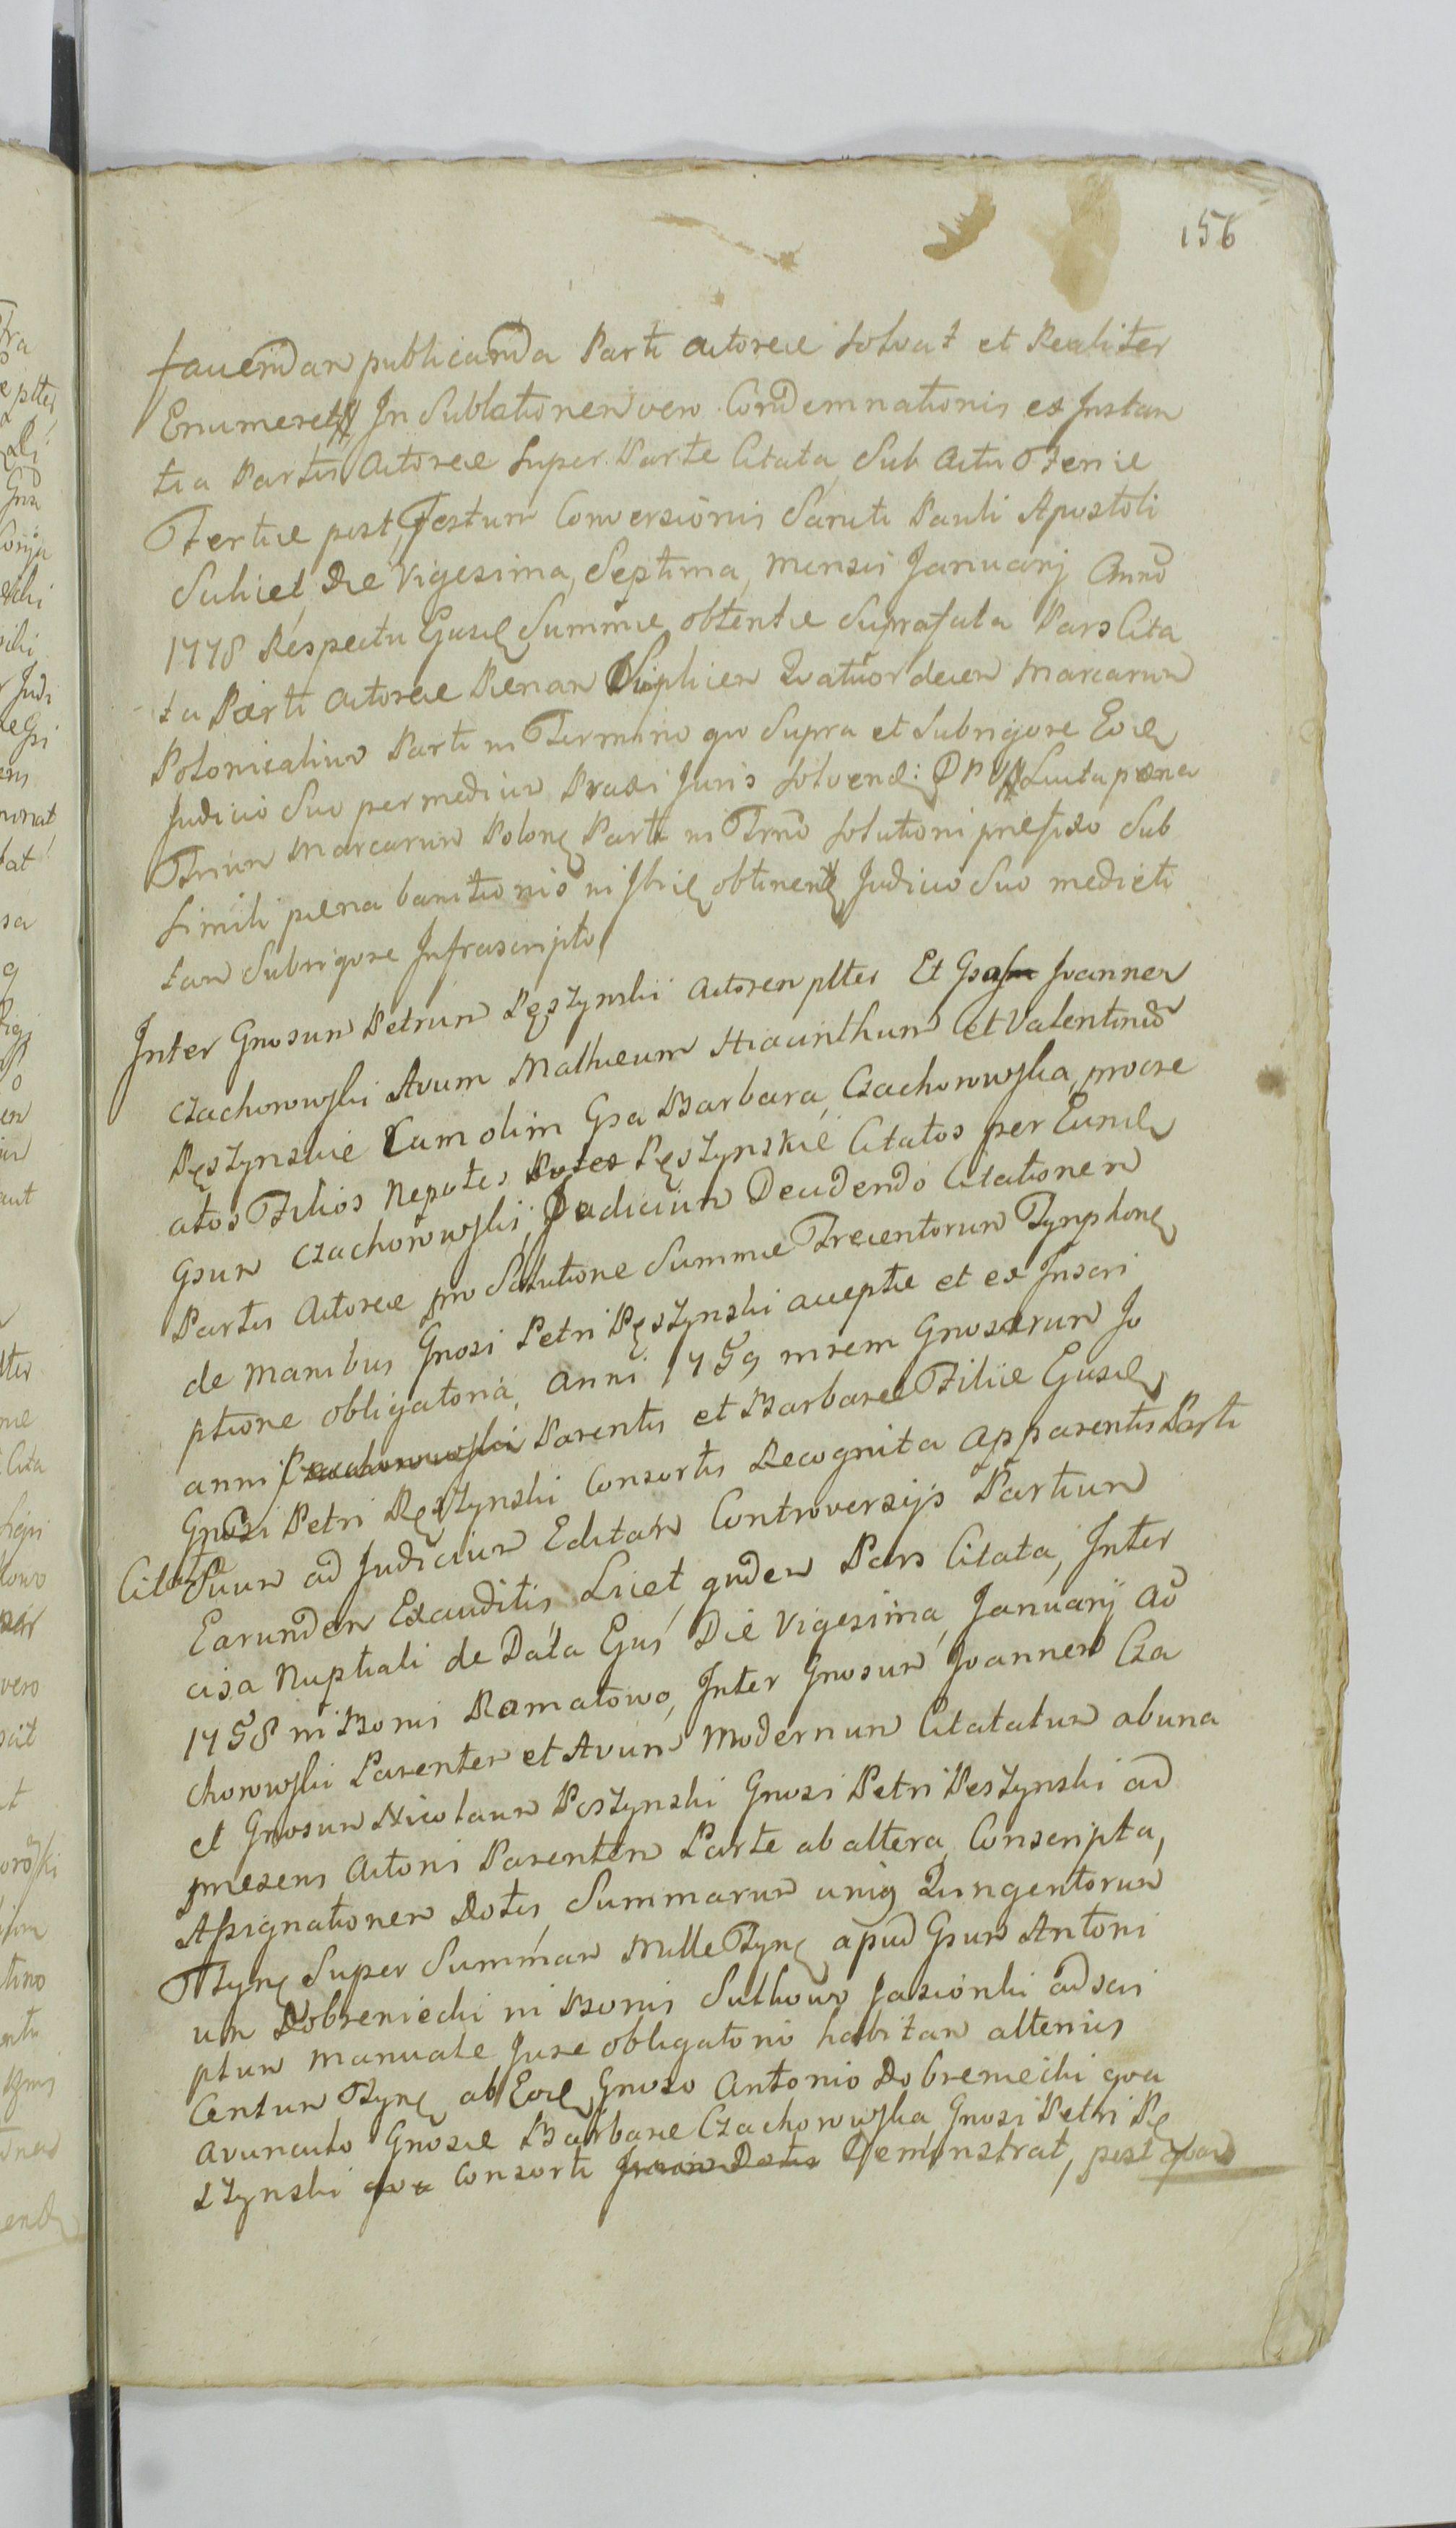 156
favendam publicanda Parti actoreae solvat et Realiter
Enumeret In Sublationem vero Condemnationis ex Instan
tia Partis Actoreae super Parte Citata Sub Actu Feriae
Tertiae post Festum Conversionis Sancti Pauli Apostoli
Scilicet Die Vigesima Septima mensis Januarij Anno
1778 Respectu Ejusd Summae obtentae Suprafata Pars Cita
ta Parti Actoreae Paenam Duplicem Quatuordecem Marcarum
Polonicalium Parti in Termino quo Supra et Subrigore Eod
Judicio Suo permedium Praxi Juris solvend: Luita paena
Trium Marcarum Polon Parti in Trno solutioni praefixo Sub
simili paena banitionis obtinend Judicio Suo medieta
tem Subrigore Infrascripto
Inter Gnosum Petrum Pęszynski Actorem pltes Et Gsum Joannem
Czachorowski Avum Mathaeum Hiacinthum et Valentinum
Pęszynskie cum olim Gsa Barbara Czachorowska procre
atos Filios Nepotes Pęszynskie Citatos per Eund
Gsum Czachorowski, Judicium Decidendo Citationem
Partis Actoreae pro Solutione Summae Trecentorum Tynphon
de manibus Gnosi Petri Pęszynski acceptae et ex Inscri
ptione obligatoria Anni 1759 Gnosorum Jo
anni Czachorowski Parentis et Barbarae Filiae Ejusd
Gnosi Petri Pęszynski Consortis Recognita apparentis Parti
Citat Suum ad Judicium Editam Controversijs Partium
Earundem Exauditis Licet quidem Pars Citata, Inter
cisa Nuptiali de Data Ejus Die Vigesima Januarij Ao
1758 in Bonis Ramatowo, Inter Gnosum Joannem Cza
chorowski Parentem et Avum Modernum Citatatum abuna
et Gnosum Nicolaum Peszynski Gnosi Petri Peszynski ad
praesens Actoris Parentem Parte ab altera Conscripta,
Assignationem Dotis Summarum unius Quingentorum
Tyn Super Summam Mille Tyn apud Gsum Antoni
um Dobreniecki in Bonis Sulkowo Jasionki adscri
ptum manuale Jure obligatorio habitam alterius
Centum Tyn ab Eod Gnoso Antonio Dobreniecki qua
Avunculo Gnosae Barbarae Czachorowska Gnosi Petri Pę
szynski qua Consorti Demonstrat, post quam